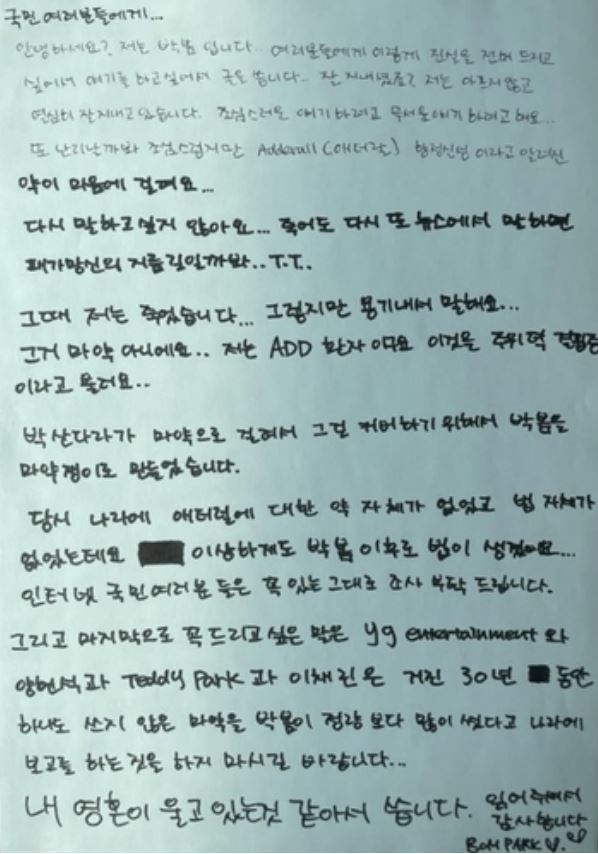 국민 여러분들에게...
안녕하세요? 저는 박봄 입니다.. 여러분들에게 이렇게 진실을 전해 드리고
싶어서 얘기를 하고싶어서 글을 씁니다.. 잘 지내셨죠? 저는 아프지 않고
열심히 잘지내고 있습니다. 조심스러운 얘기 하려고 무서운얘기 하려고 해요...
또 난리난까봐 조심스럽지만 Adderall (애더럴) 향정신성 이라고 알려진
약이 마음에 걸려요...
다시 말하고싶지 않아요... 죽어도 다시 또 뉴스에서 말하면
패가망신의 지름길일까봐..T.T..
그때 저는 죽었습니다... 그렇지만 용기내서 말해요...
그거 마약 아니에요.. 저는 ADD 환자 이구요 이것을 주위력 결핍증
이라고 불러요..
박산다라가 마약으로 걸려서 그걸 커버하기 위해서 박봄을
마약쟁이로 만들었습니다.
당시 나라에 애터럴에 대한 약 자체가 없었고 법 자체가
없었는데요 이상하게도 박봄 이후로 법이 생겼어요...
인터넷 국민여러분 들은 꼭 있는 그대로 조사 부탁 드립니다.
그리고 마지막으로 꼭 드리고 싶은 말은 yg entertainment 와
양현석과 Teddy Park 과 이채린은 거진 30년 동안
하나도 쓰지 않은 마약을 박봄이 정량 보다 많이 썼다고 나라에
보고를 하는 짓을 하지 마시길 바랍니다...
내 영혼이 울고 있는것 같아서 씁니다. 읽어주셔서
감사합니다
BOM PARK